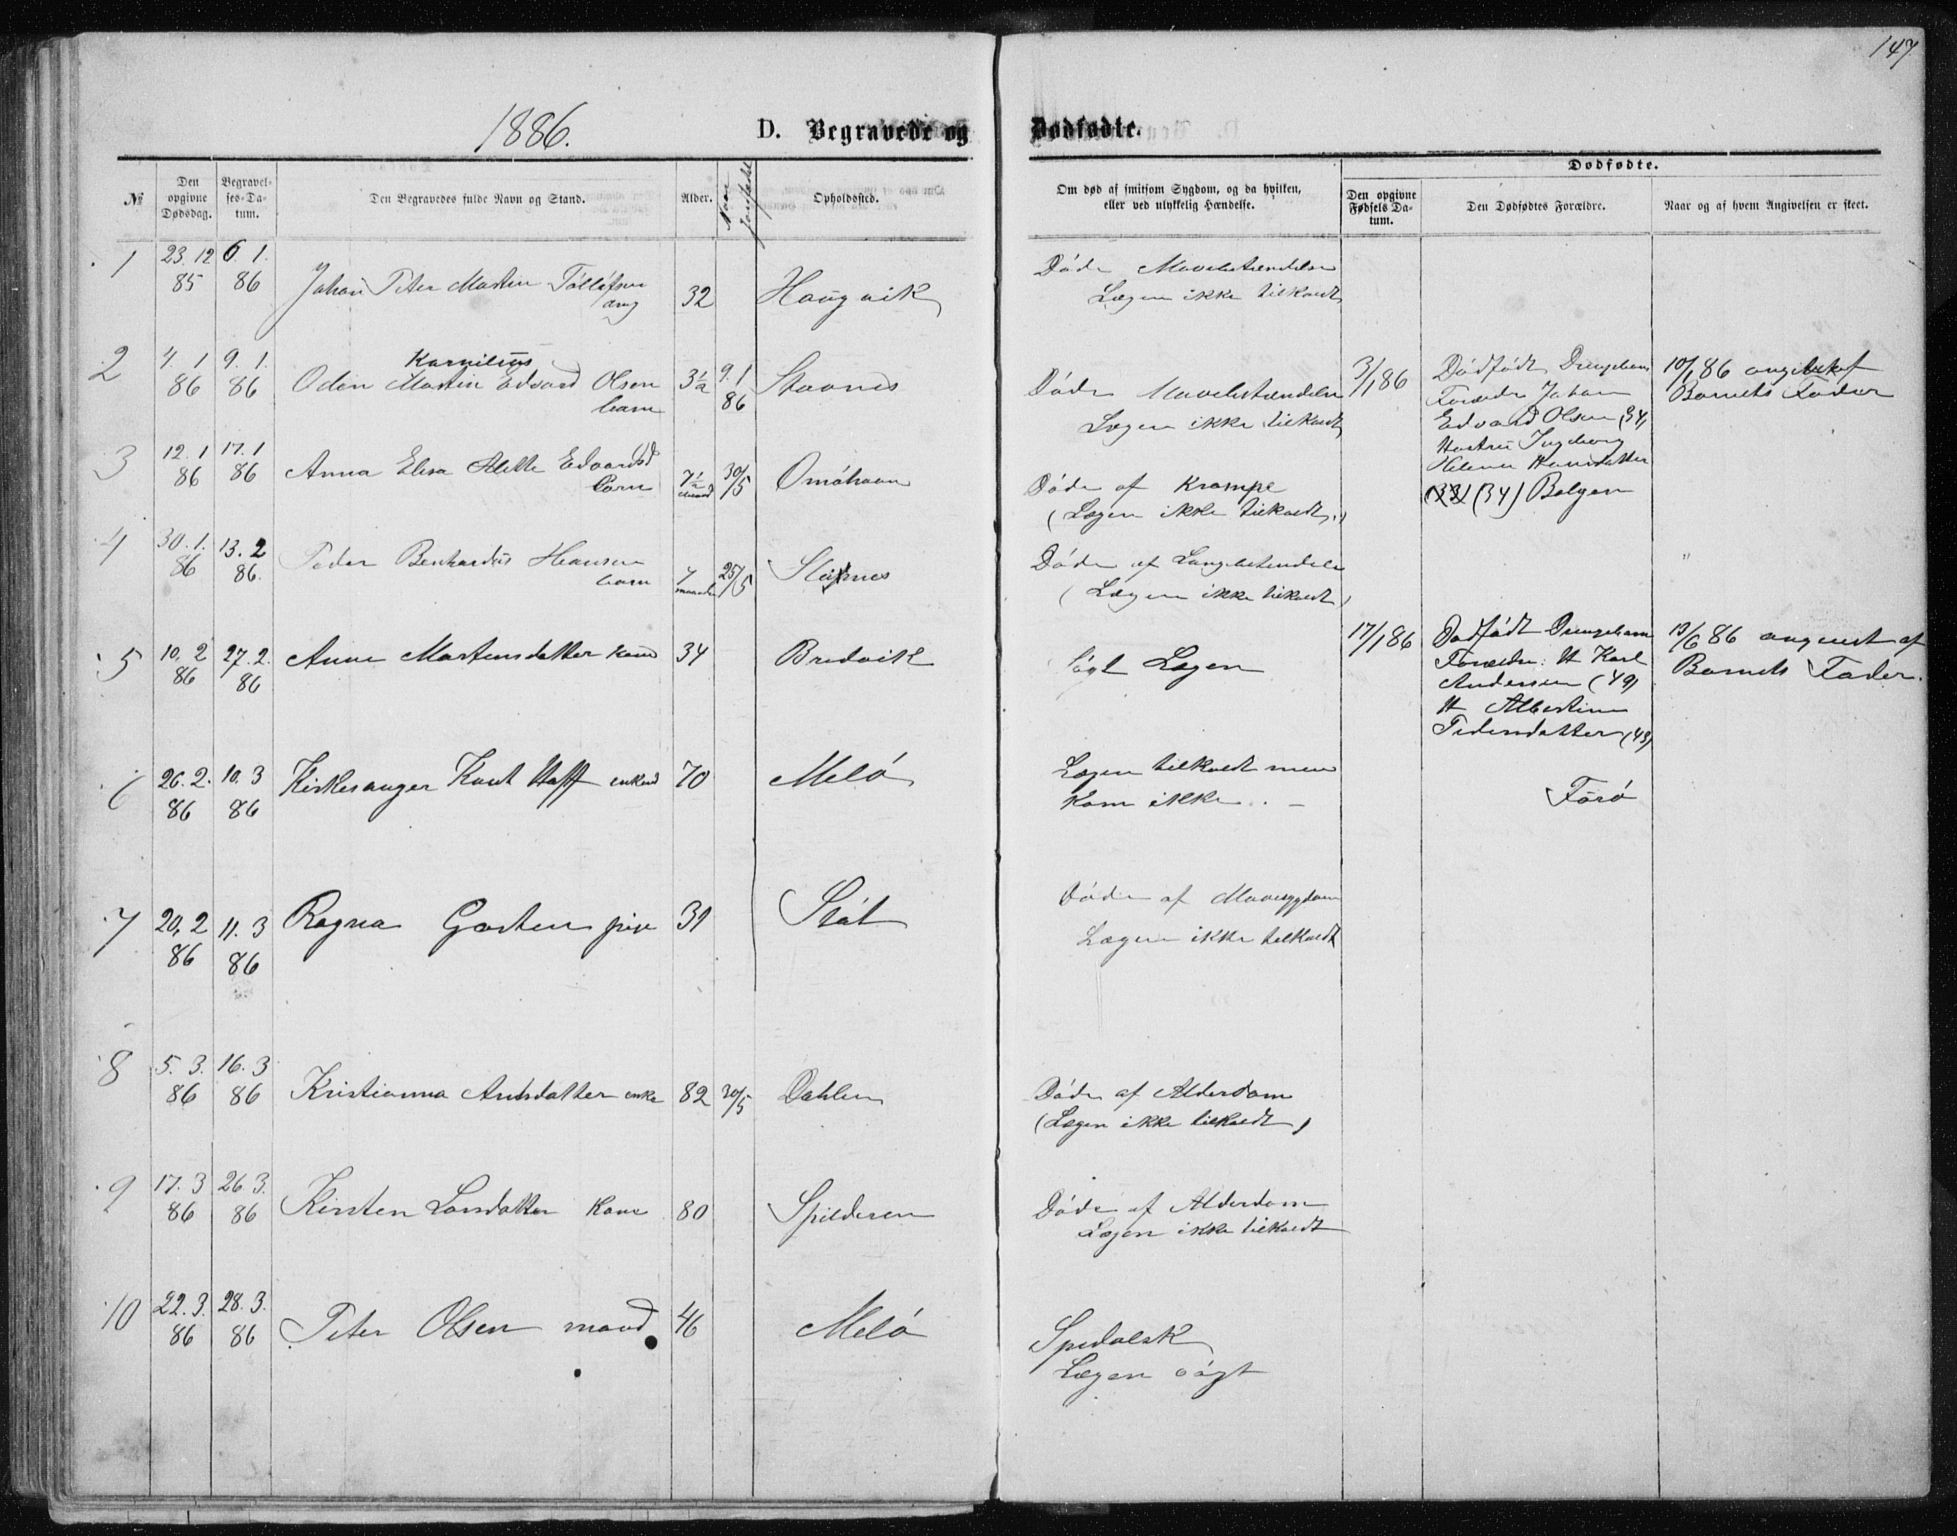 147
1886.
D. Begravede og Dødfødte.
№
Den opgivne Dødsdag.
Begravelses-Datum.
Den Begravedes fulde Navn og Stand.
Alder.
Naar jordfæstet
Opholdssted.
Om død af smitsom Sygdom, og da hvilken, eller ved ulykkelig Hændelse.
Dødfødte.
Den opgivne Fødsels Datum.
Den Dødfødtes Forældre.
Naar og af hvem Angivelsen er skeet.
1 23.12 85 6.1. 86 Johan Peter Martin Tøllefsen ung 32 Haugvik
Døde Mavebetændelse
Lægen ikke tilkaldt
2 4.1 86 9.1. 86 Odin Martin Kornilius Edvard Olsen barn 3½ 9.1 86 Stavnes
Døde Mavebetændelse
Lægen ikke tilkaldt
3/1 86
Dødfødt Drengebarn
Forældre Johan
Edvard Olsen (34)
Hustru Ingeborg
Helena Hansdatter
(34) Bolgen
10/1 86 angivet af
Barnets Fader
3 12.1 86 17.1 86 Anna Elisa Alette Edvardsd barn 7½ maand 30/5 Omøhavn
Døde af Krampe
(Lægen ikke tilkaldt.)
4 30.1. 86 13.2 86. Peder Benhardus Hansen barn 7 maaneder 25/5
Døde af Lungebetændelse
(Lægen ikke tilkaldt)
5 10.2 86 27.2. 86 Anne Martensdatter kone 34 Bredvik
Søgt Lægen
17/1 86
Dødfødt Drengebarn
Forældre: H Karl
Andersen (49)
H Albertine
Pedersdatter (43)
Forø
13/6 86 angivet af
Barnets Fader.
6 26.2. 86 10.3 86 Kirkesanger Knut Hoff enkem 70 Melø
Lægen tilkaldt men
kom ikke . –
7 20.2 86 11.3 86 Ragna Gosten pige 31 Støt
Døde af Mavesygdom
Lægen ikke tilkaldt
8 5.3. 86 16.3 86 Kristianna Andsdatter enke 82 30/5 Dahlen
Døde af Alderdom
(Lægen ikke tilkaldt)
9 17.3 86 26.3. 86 Kirsten Larsdatter kone 80 Spilderen
Døde af Alderdom
Lægen ikke tilkaldt
10 22.3. 86 28.3. 86 Peter Olsen mand 46 Melø
Spedalsk
Lægen søgt